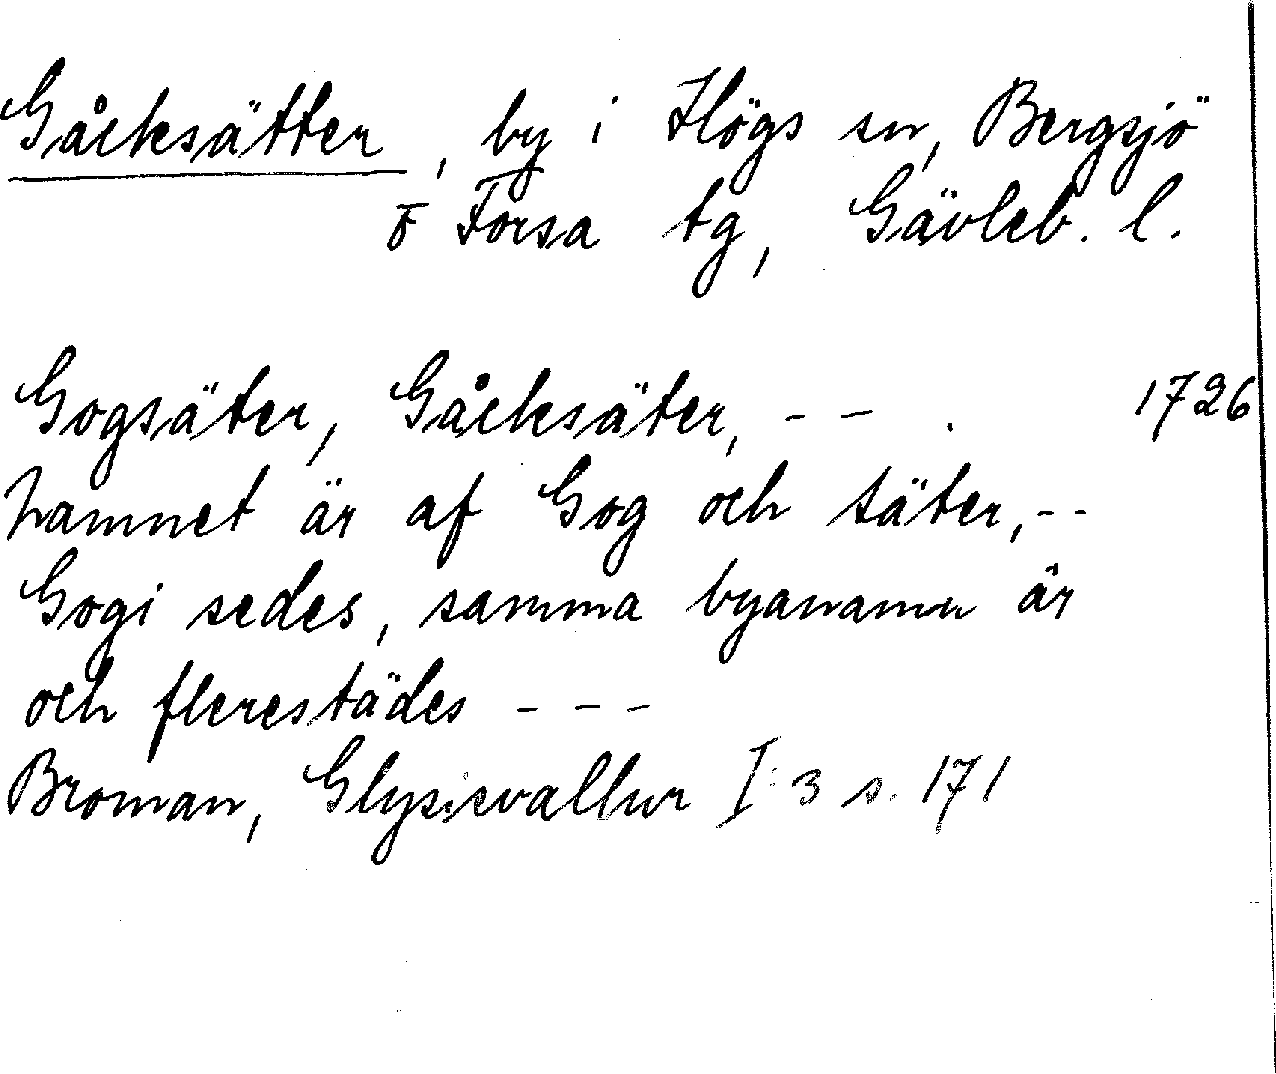 Gåcksätter, by i Högs sn, Bergsjö
o Forsa tg, Gävleb. l.
Gogsäter, Gåcksäter, - - . 1726
namnet är af Gog och säter, - -
Gogi sedes, samma byanamn är
och flerestädes - - -
Broman, Glysisvallur I: 3 s. 171